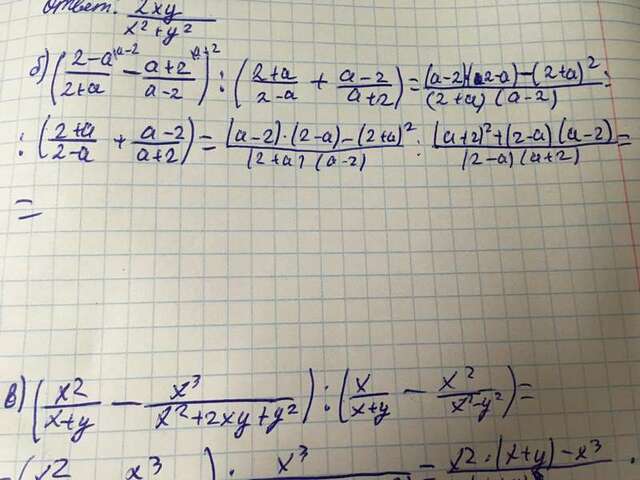 Ответ: 2xy / x² + y²
б) ( 2-a / 2+a - a+2 / a-2 ) : ( 2+a / 2-a + a-2 / a+2 ) = (a-2)(2-a) - (2+a)² / (2+a)(a-2) :
: ( 2+a / 2-a + a-2 / a+2 ) = (a-2)·(2-a) - (2+a)² / (2+a)(a-2) : (a+2)² + (2-a)(a-2) / (2-a)(a+2) =
=
в) ( x² / x+y - x³ / x²+2xy+y² ) : ( x / x+y - x² / x²-y² ) =
x² x³ ) · x³ - x²·(x+y) - x³